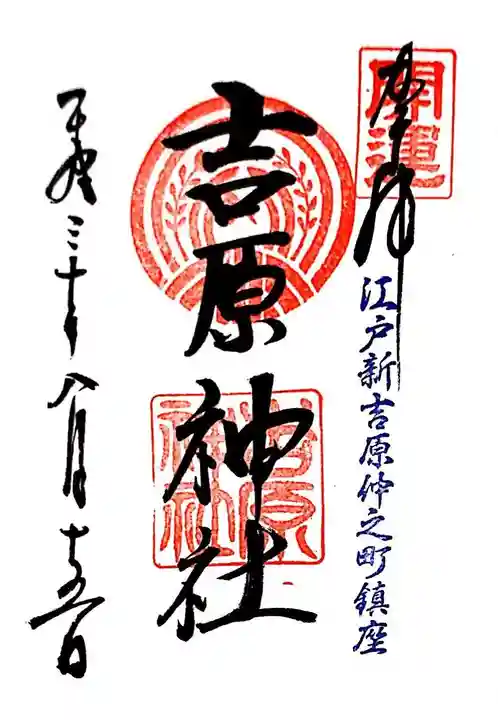 奉拝
開運
江戸新吉原仲之町鎮座
吉原神社
吉原神社
平成三十年八月十五日